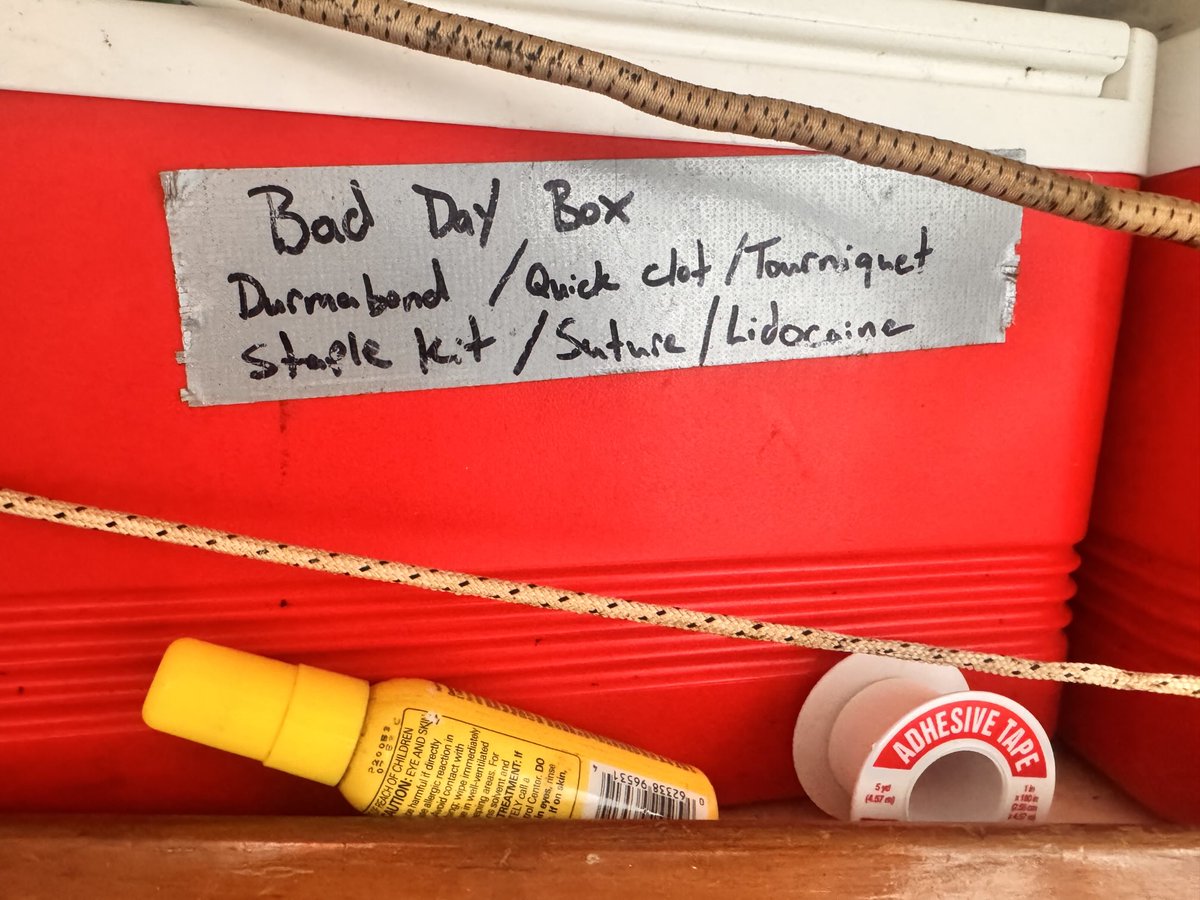 Bad Day Box
Durmabond / Quick clot / Tourniquet
Staple kit / Suture / Lidocaine
REACH OF CHILDREN
CAUTION: EYE AND SKIN
harmful if directly
allergic reaction in
avoid contact with
wipe immediately
in well-ventilated
areas. For
solvent and
TREATMENT: If
call a
Control Center. DO
in eyes, rinse
If on skin,
0 62338 96531 4
ADHESIVE TAPE
5 yd
(4.57 m)
1 in
x 180 in